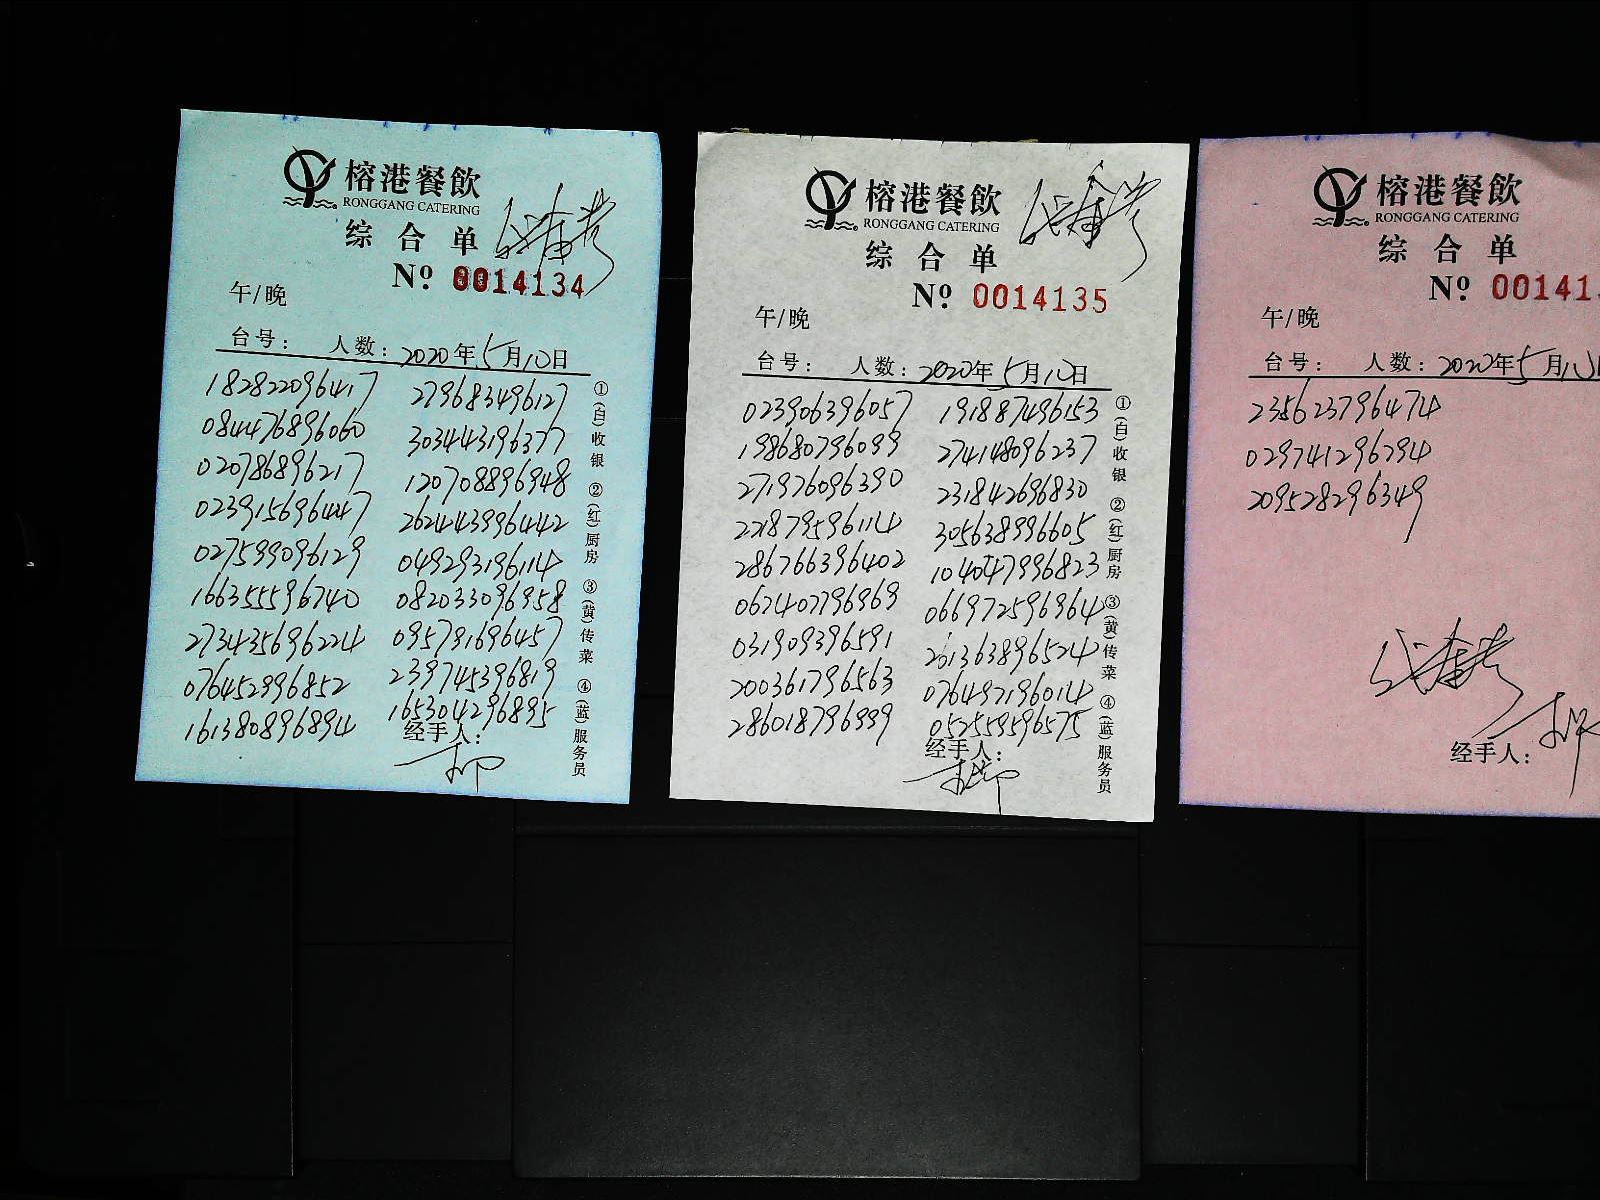 榕港餐飲
RONGGANG CATERING
综合单
№ 0014134
午/晚
台号： 人数：2020年5月10日
182822096417 279683496127
084476896060 303443196377
020786896217 120708896948
023915696447 262443996442
027599096129 049293196114
166355596740 082033096958
273435696224 095791696457
076452996852 239745396819
161380896894 165304296895
经手人：
①(白)收银 ②(红)厨房 ③(黄)传菜 ④(蓝)服务员
榕港餐飲
RONGGANG CATERING
综合单
№ 0014135
午/晚
台号： 人数：2020年5月10日
023906396057 191887496153
198680796099 274148096237
271976096390 231842696830
221879596114 305638996605
286766396402 104047996823
062407796969 066972596964
031909396591 201363896524
200361796563 076497196014
286018796999 052559596575
经手人：
①(白)收银 ②(红)厨房 ③(黄)传菜 ④(蓝)服务员
榕港餐飲
RONGGANG CATERING
综合单
№ 001413
午/晚
台号： 人数：2020年5月10
235623796474
029741296294
209528296349
经手人：